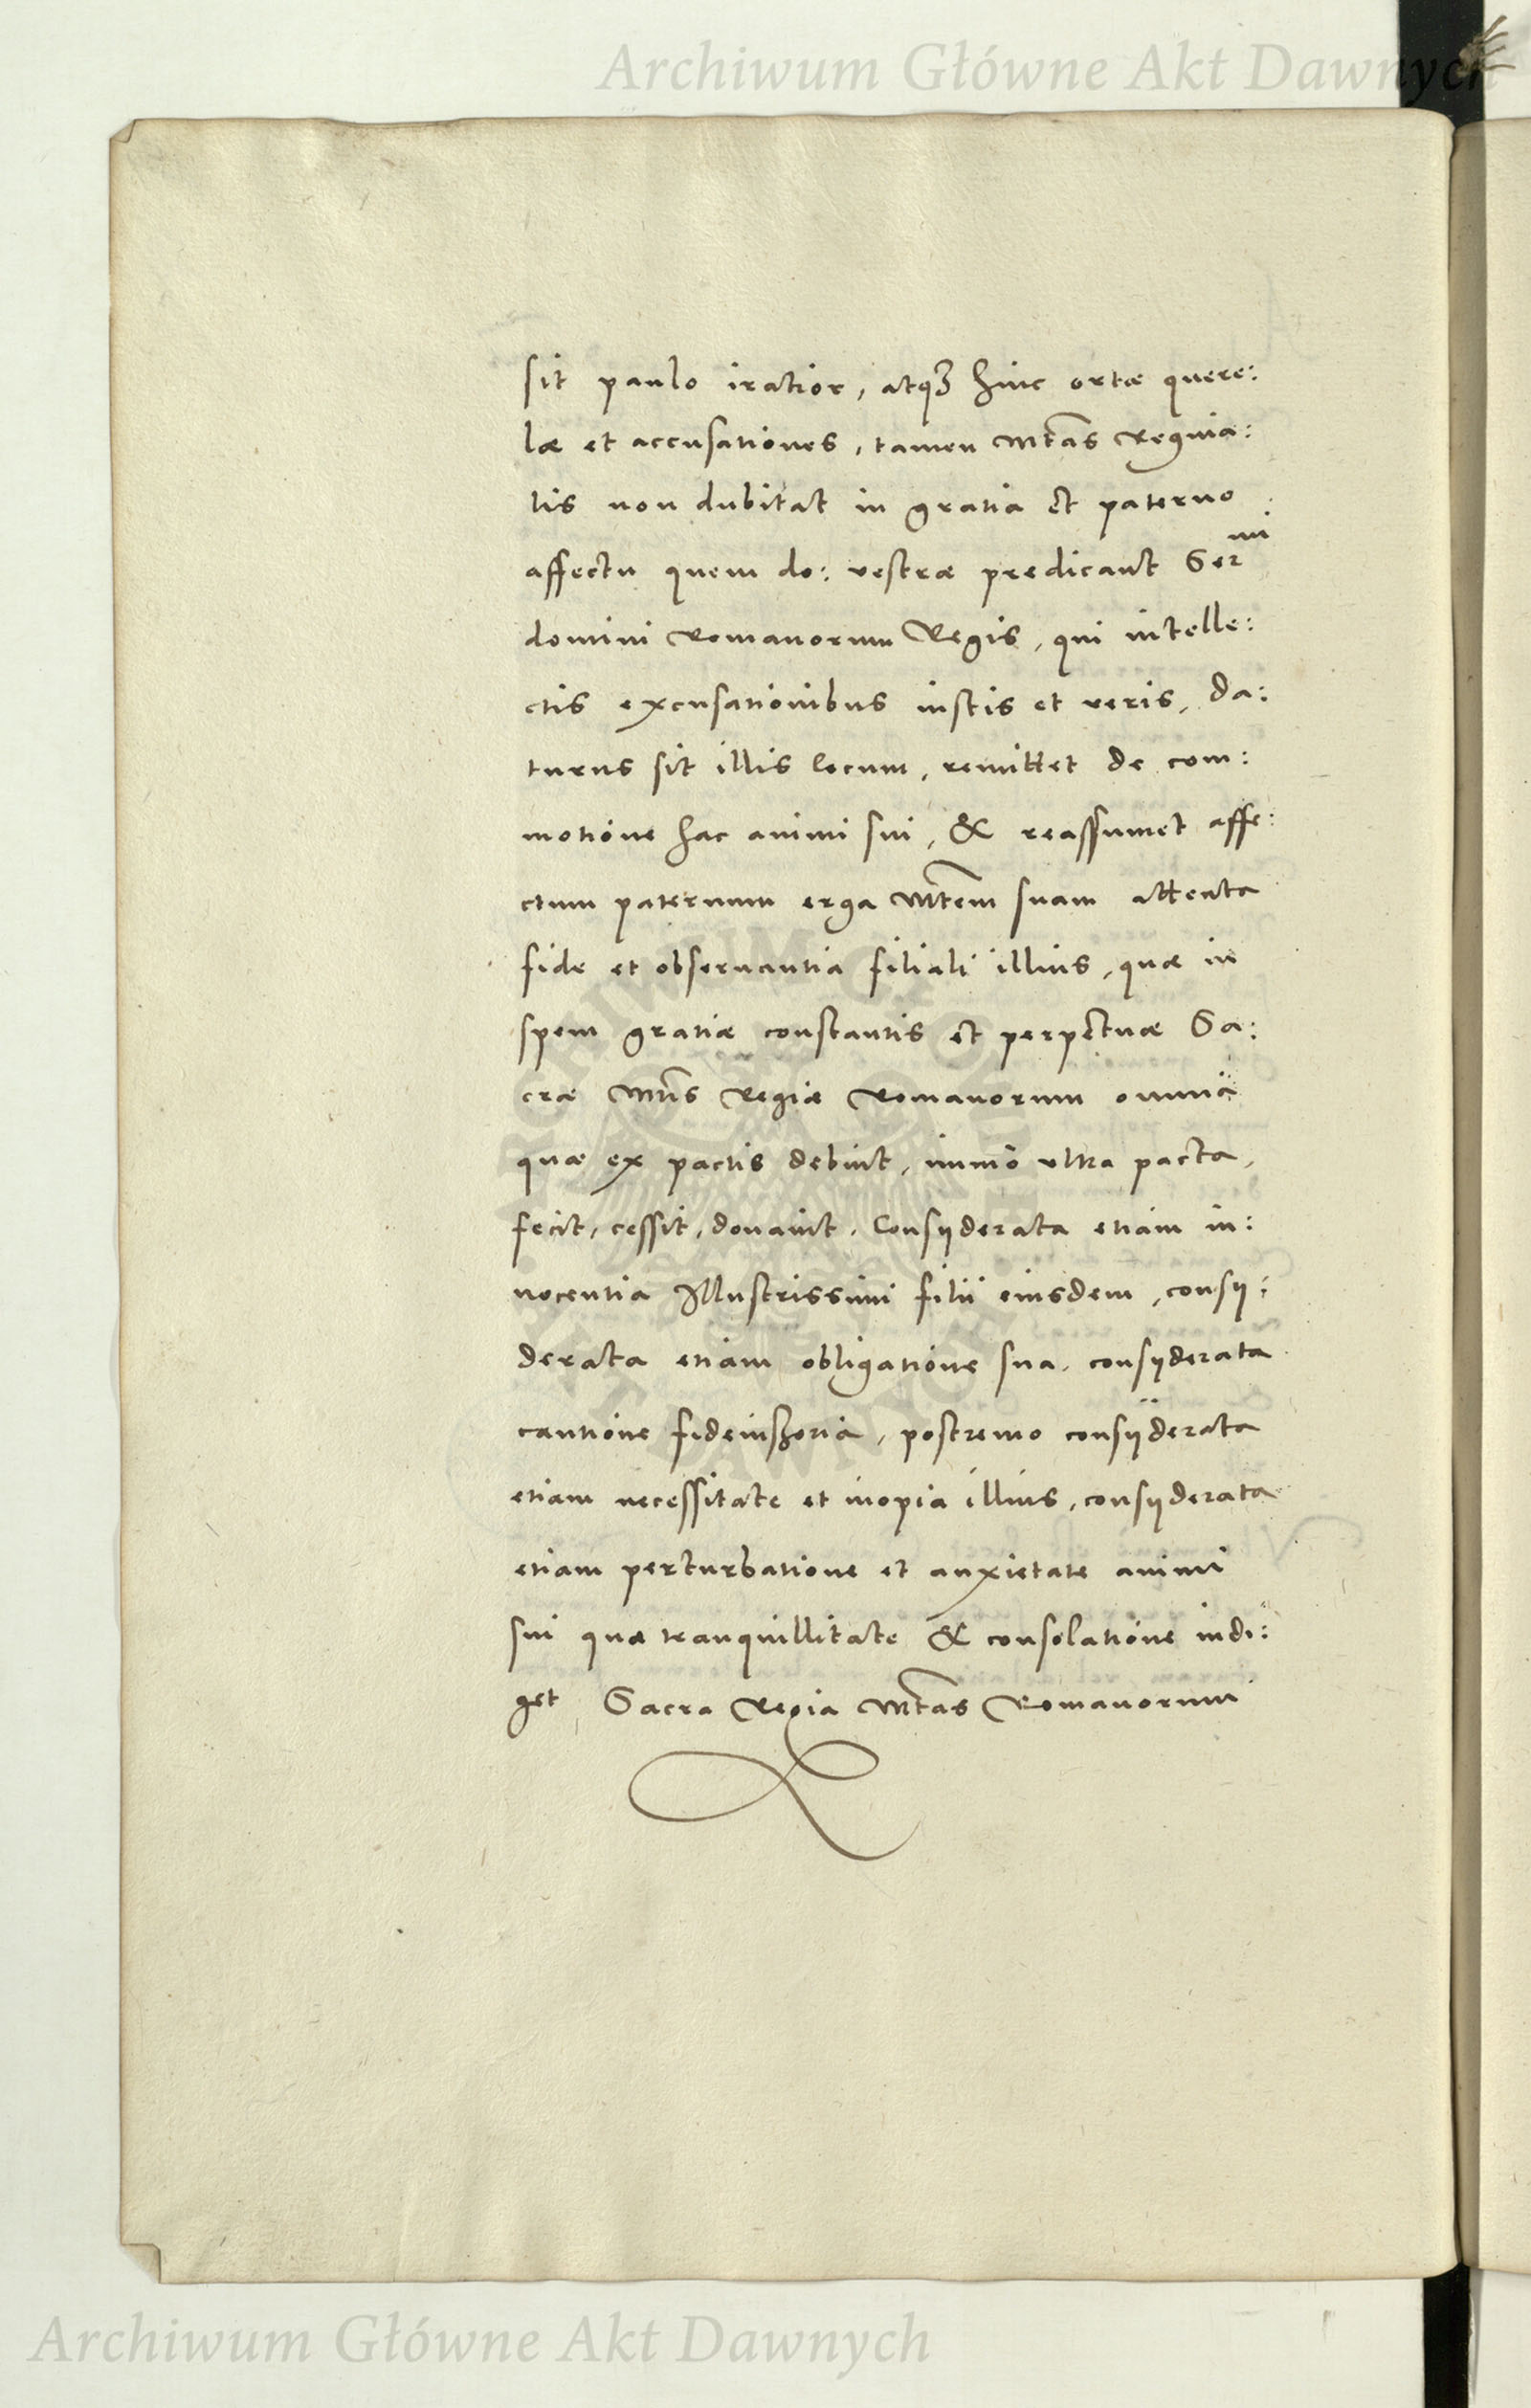 Archiwum Główne Akt Dawnych
sit paulo iratior, atqꝫ hinc ortæ quere:
læ et accusationes, tamen Mtas Regina:
lis non dubitat in gratia et paterno
affectu quem do: vestræ predicant Serᵐⁱ
domini Romanorum Regis, qui intelle:
ctis excusationibus iustis et veris, da:
turus sit illis locum, remittet de com:
motione hac animi sui, & reassumet affe:
ctum paternum erga Mtem suam attenta
fide et obseruantia filiali illius, quæ in
spem gratiæ constantis et perpetuæ Sa:
cræ Mtis Regiæ Romanorum omnia
quæ ex pactis debuit, immo ultra pacta,
fecit, cessit, donauit. Consyderata etiam in:
nocentia Illustrissimi filii eiusdem, consy:
derata etiam obligatione sua, consyderata
cautione fideiussoria, postremo consÿderata
etiam necessitate et inopia illius, consyderata
etiam perturbatione et anxietate animi
sui quæ tranquillitate & consolatione indi:
get, Sacra Regia Mtas Romanorum
ARCHIWUM
DAWNYCH
Archiwum Główne Akt Dawnych